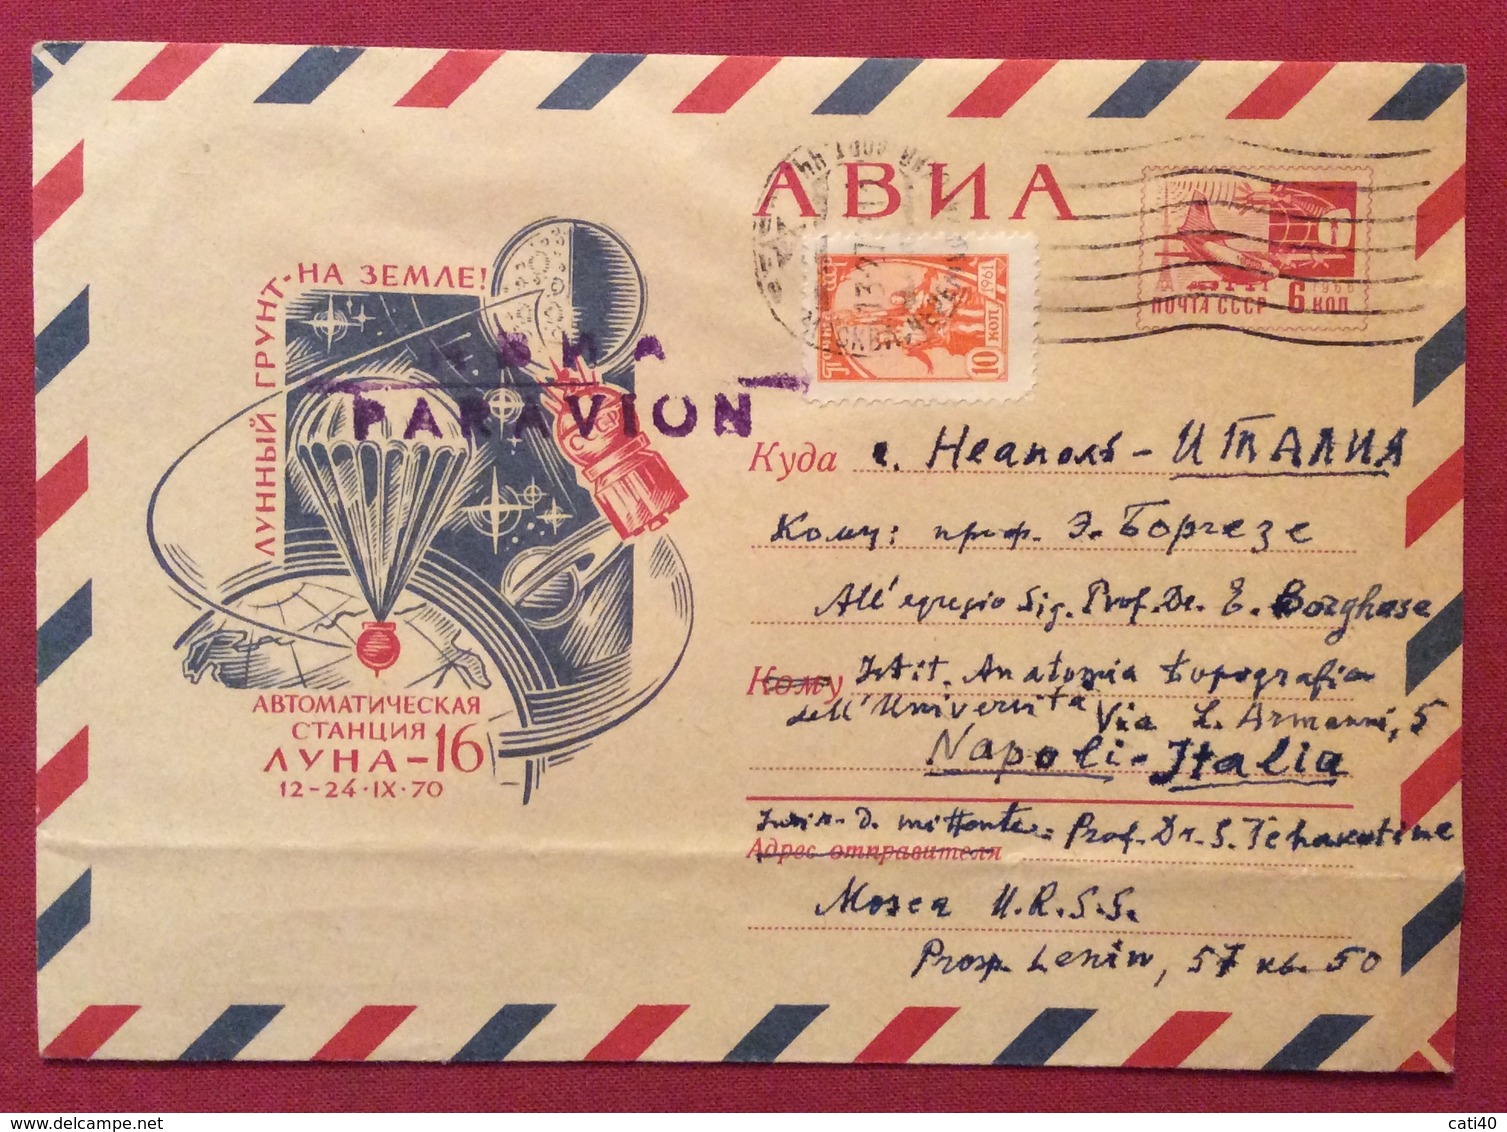 АВИА
ПОЧТА СССР 6 КОП
1961
10 КОП
МОСКВА
ЛУННЫЙ ГРУНТ-НА ЗЕМЛЕ!
АВИА
PAR AVION
СССР
Куда г. Неаполь - ИТАЛИЯ
Кому: проф. Э. Боргезе
All'egregio Sig. Prof. Dr. E. Borghese
Кому Istit. Anatomia topografia
dell'Universita Via L. Armanni, 5
Napoli - Italia
АВТОМАТИЧЕСКАЯ
СТАНЦИЯ
ЛУНА-16
12-24·IX·70
D. mittente: Prof. Dr. S.
Адрес отправителя
Mosca U.R.S.S.
Prosp. Lenin, 57 кв. 50
cati40